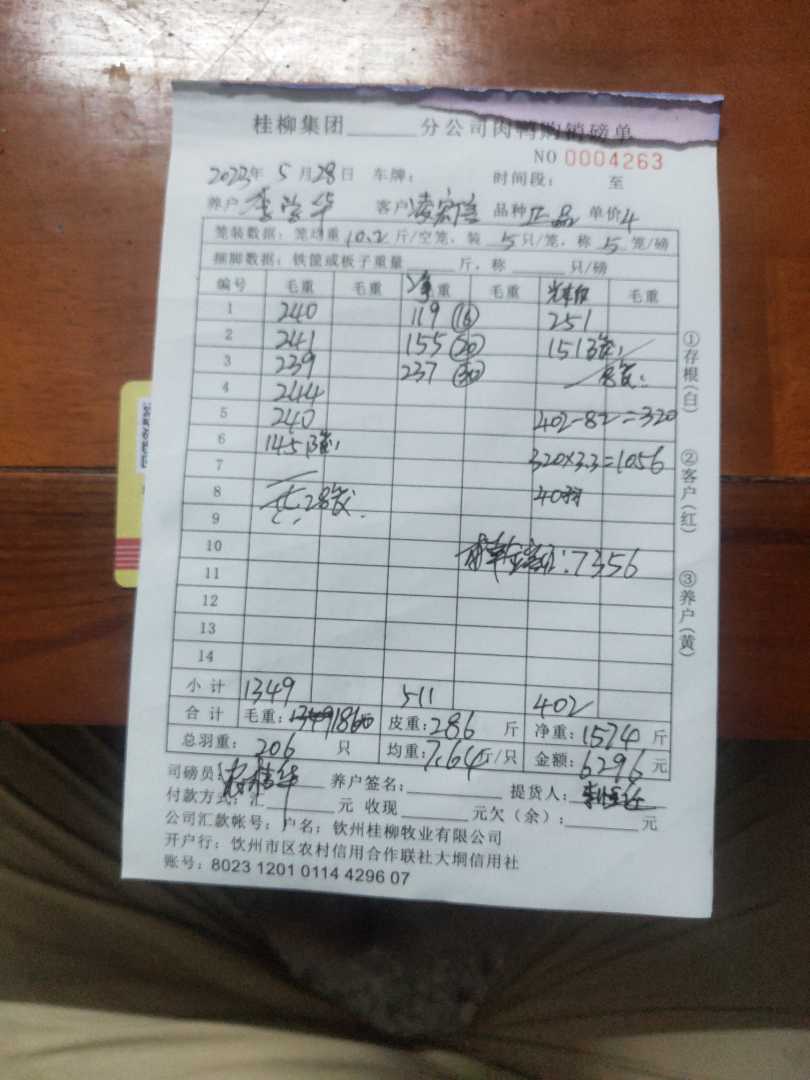 桂柳集团______分公司肉鸭购销磅单
NO 0004263
2023年 5 月 28 日 车牌: 时间段: 至
养户 李 华 客户 凌宏 品种 正品 单价 4
笼装数据: 笼均重 10.2 斤/空笼, 装 5 只/笼, 称 5 笼/磅
捆脚数据: 铁筐或板子重量______斤, 称______只/磅
编号 毛重 毛重 净重 毛重 毛重
1 240 119 (16) 251
2 241 155 (20) 151 3笼
3 239 237 (30) 8笼
4 244
5 240 402-82=320
6 145 3笼
7 320×3.3=1056
8 28笼 40羽
9
10 :7356
11
12
13
14
小计 1349 511 402
合计 毛重: 1860 皮重: 286 斤 净重: 1574 斤
总羽重: 206 只 均重: 7.64 斤/只 金额: 6296 元
司磅员: 华 养户签名:______ 提货人:
付款方式: 汇______元 收现______元欠(余):______元
公司汇款帐号: 户名: 钦州桂柳牧业有限公司
开户行: 钦州市区农村信用合作联社大垌信用社
账号: 8023 1201 0114 4296 07
①存根(白) ②客户(红) ③养户(黄)